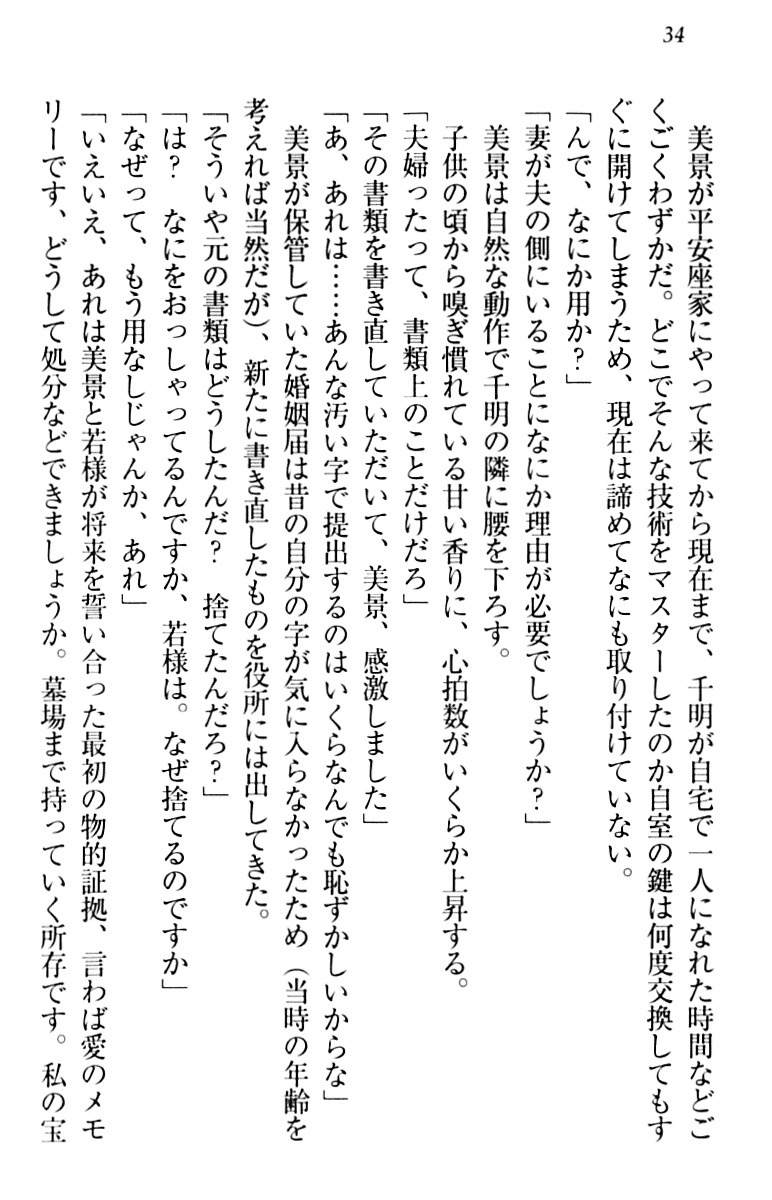 34
美景が平安座家にやって来てから現在まで、千明が自宅で一人になれた時間などご
くごくわずかだ。どこでそんな技術をマスターしたのか自室の鍵は何度交換してもす
ぐに開けてしまうため、現在は諦めてなにも取り付けていない。
「んで、なにか用か?」
「妻が夫の側にいることになにか理由が必要でしょうか?」
美景は自然な動作で千明の隣に腰を下ろす。
子供の頃から嗅ぎ慣れている甘い香りに、心拍数がいくらか上昇する。
「夫婦ったって、書類上のことだけだろ」
「その書類を書き直していただいて、美景、感激しました」
「あ、あれは……あんな汚い字で提出するのはいくらなんでも恥ずかしいからな」
美景が保管していた婚姻届は昔の自分の字が気に入らなかったため(当時の年齢を
考えれば当然だが)、新たに書き直したものを役所には出してきた。
「そういや元の書類はどうしたんだ? 捨てたんだろ?」
「は? なにをおっしゃってるんですか、若様は。なぜ捨てるのですか」
「なぜって、もう用なしじゃんか、あれ」
「いえいえ、あれは美景と若様が将来を誓い合った最初の物的証拠、言わば愛のメモ
リーです、どうして処分などできましょうか。墓場まで持っていく所存です。私の宝